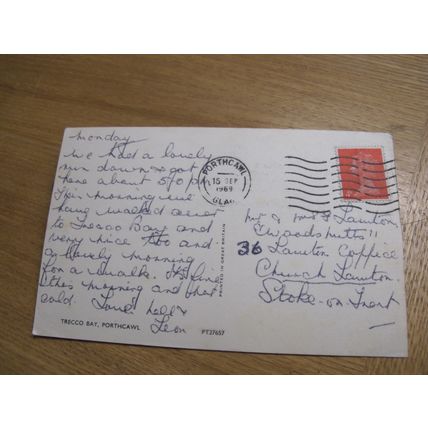 Monday
We had a lovely
run down & got
here about 5/0 pm
This morning we
have walked over
to Trecco Bay and
very nice too and
a lovely morning
for a walk. Its fine
this morning and
cold. Love
Leon
TRECCO BAY, PORTHCAWL
PT27657
PRINTED IN GREAT BRITAIN
PORTHCAWL
15 SEP
1969
GLAM
Mr & Mrs Lawton
36 Lawton Coppice
Church Lawton
Stoke-on-Trent